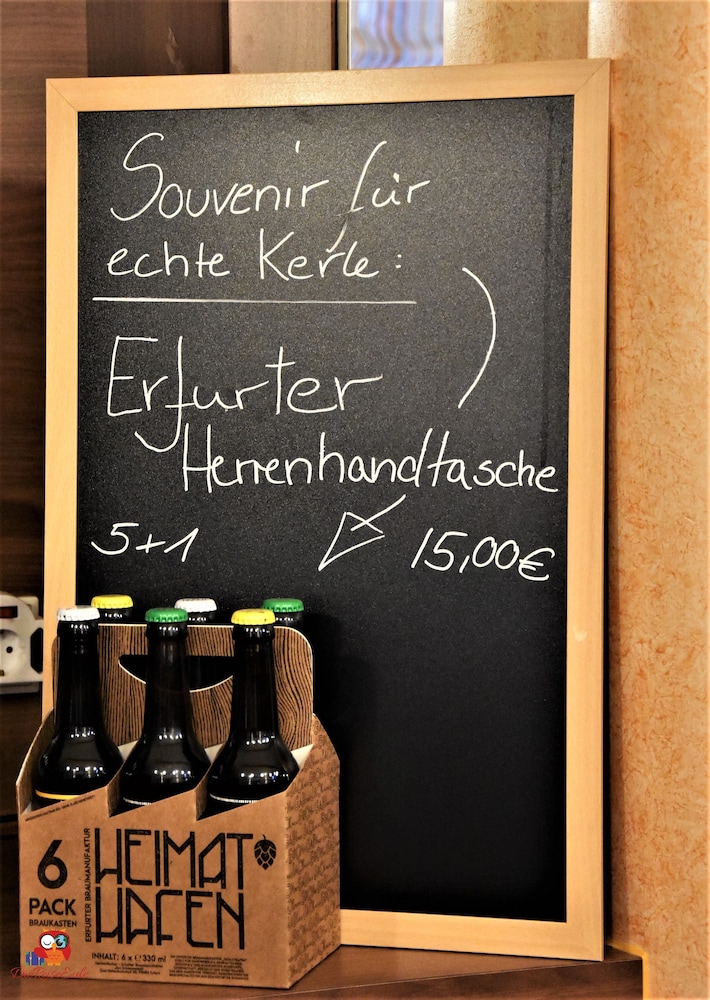 Souvenir für
echte Kerle:
Erfurter
Herrenhandtasche
5+1
15,00€
6
PACK
BRAUKASTEN
ERFURTER BRAUMANUFAKTUR
HEIMAT
HAFEN
INHALT: 6 x ℮ 330 ml